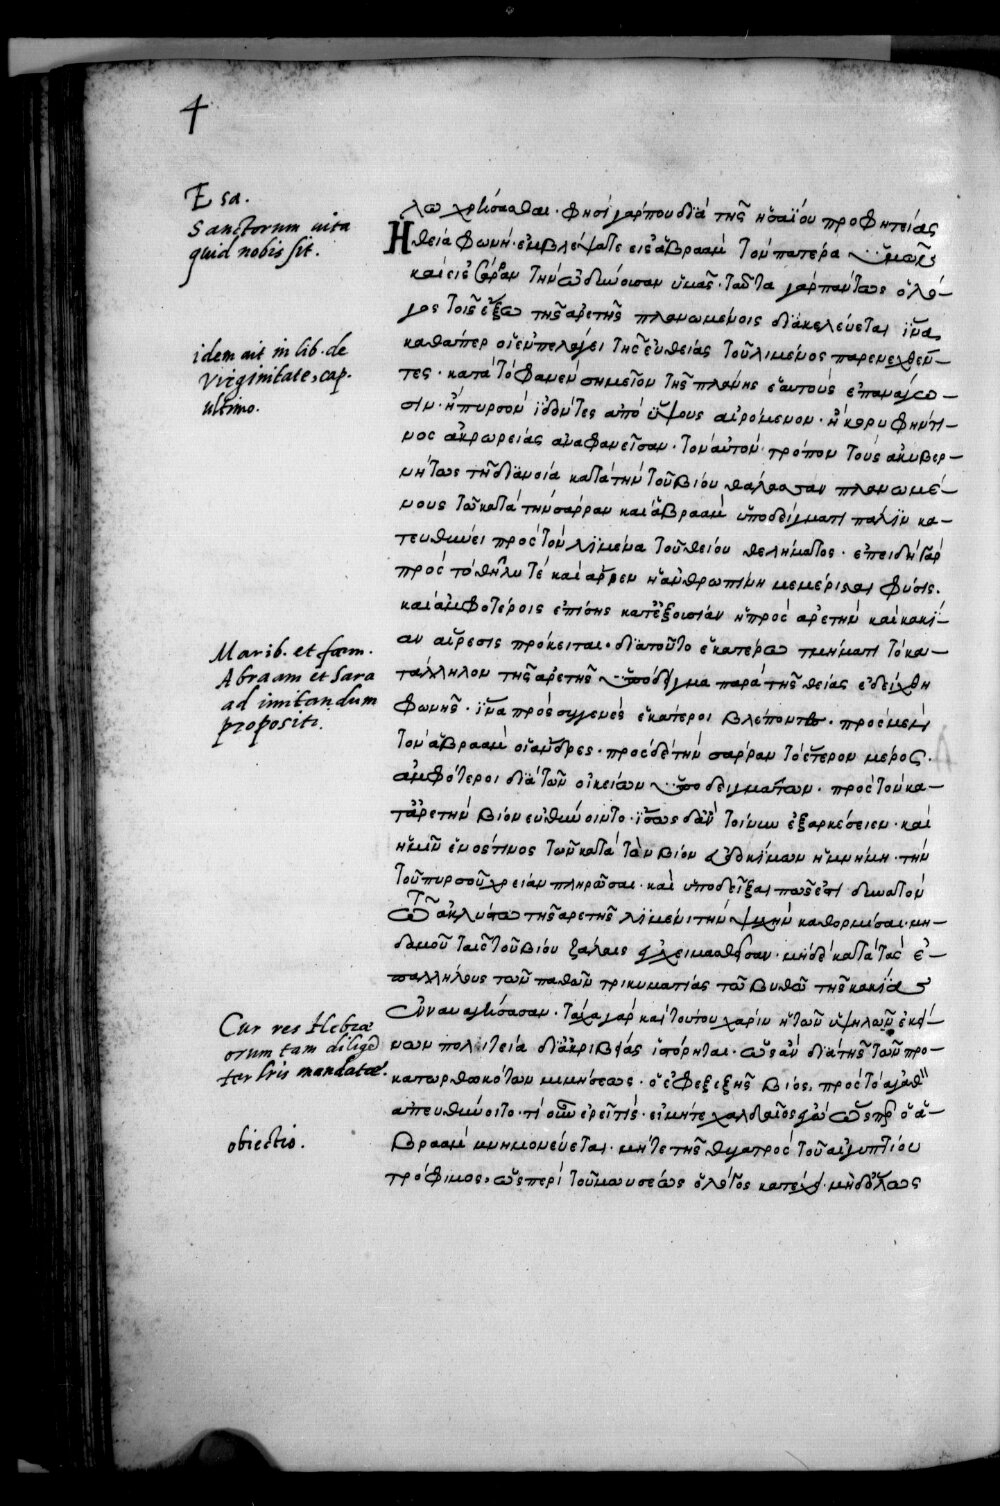 4
Esa.
Sanctorum uita
quid nobis sit.
idem ait in lib. de
Virginitate, cap.
ultimo.
Marib. et fœm.
Abraam et Sara
ad imitandum
propositi.
Cur res Hebræ
orum tam diligē
ter lris mandatæ.
obiectio.
λω χρήσασθαι· φησὶ γάρ που διὰ τῆς ἡσαΐου προφητείας
Ἡ θεία φωνή· ἐμβλέψατε εἰς ἀβραὰμ τὸν πατέρα ὑμῶν
καὶ εἰς σάρραν τὴν ὠδίνουσαν ὑμᾶς· ταῦτα γὰρ πάντως ὁ λό–
γος τοῖς ἔξω τῆς ἀρετῆς πλανωμένοις διακελεύεται ἵνα
καθάπερ οἱ ἐν πελάγει τῆς εὐθείας τοῦ λιμένος παρενεχθέν–
τες· κατὰ τὸ φανὲν σημεῖον τῆς πλάνης ἑαυτοὺς ἐπανάγου–
σιν· ἢ πυρσὸν ἰδόντες ἀπὸ ὕψους αἰρόμενον· ἢ κορυφήν τι–
νος ἀκρωρείας ἀναφανεῖσαν· τὸν αὐτὸν τρόπον τοὺς ἀκυβερ–
νήτως τῇ διανοίᾳ κατὰ τὴν τοῦ βίου θάλασσαν πλανωμέ–
νους τῶ κατὰ τὴν σάρραν καὶ ἀβραὰμ ὑποδείγματι πάλιν κα–
τευθύνει πρὸς τὸν λιμένα τοῦ θείου θελήματος· ἐπειδὴ γὰρ
πρὸς τὸ θῆλυ τὲ καὶ ἄρρεν ἡ ἀνθρωπίνη μεμέρισται φύσις.
καὶ ἀμφοτέροις ἐπίσης κατ' ἐξουσίαν ἡ πρὸς ἀρετὴν καὶ κακί–
αν αἵρεσις πρόκειται· διὰ τοῦτο ἑκατέρω τμήματι τὸ κα–
τάλληλον τῆς ἀρετῆς ὑπόδειγμα παρὰ τῆς θείας ἐδείχθη
φωνῆς· ἵνα πρὸς συγγενὲς ἑκάτεροι βλέποντες· πρὸς μὲν
τὸν ἀβραὰμ οἱ ἄνδρες· πρὸς δὲ τὴν σάρραν τὸ ἕτερον μέρος·
ἀμφότεροι διὰ τῶν οἰκείων ὑποδειγμάτων· πρὸς τὸν κα–
τ' ἀρετὴν βίον εὐθύνοιντο· ἴσως δ' ἂν τοίνυν ἐξαρκέσειεν· καὶ
ἡμῖν ἑνός τινος τῶν κατὰ τὸν βίον εὐδοκίμων ἡ μνήμη· τὴν
τοῦ πυρσοῦ χρείαν πληρῶσαι· καὶ ὑποδεῖξαι πῶς ἐστι δυνατὸν
τῶ ἀκλύστω τῆς ἀρετῆς λιμένι τὴν ψυχὴν καθορμίσαι· μη–
δαμοῦ ταῖς τοῦ βίου ζάλαις χειμασθεῖσαν· μηδὲ κατὰ τὰς ἐ–
παλλήλους τῶν παθῶν τρικυμίας τῶ βυθῶ τῆς κακίας
συνναυαγήσασαν· τάχα γὰρ καὶ τούτου χάριν ἡ τῶν ὑψηλῶν ἐκεί–
νων πολιτεία δι' ἀκριβείας ἱστόρηται· ὡς ἂν διὰ τῆς τῶν προ–
κατωρθωκότων μιμήσεως· ὁ ἐφεξεξῆς βίος, πρὸς τὸ ἀγαθὸν
ἀπευθύνοιτο· τί οὖν ἐρεῖ τίς· εἰ μήτε χαλδαῖος ἐγὼ ὥσπερ ὁ ἀ–
βραὰμ μνημονεύεται· μήτε τῆς θυγατρὸς τοῦ αἰγυπτίου
τρόφιμος, ὡς περὶ τοῦ μωυσέως ὁ λόγος κατέχει· μηδ' ὅλως